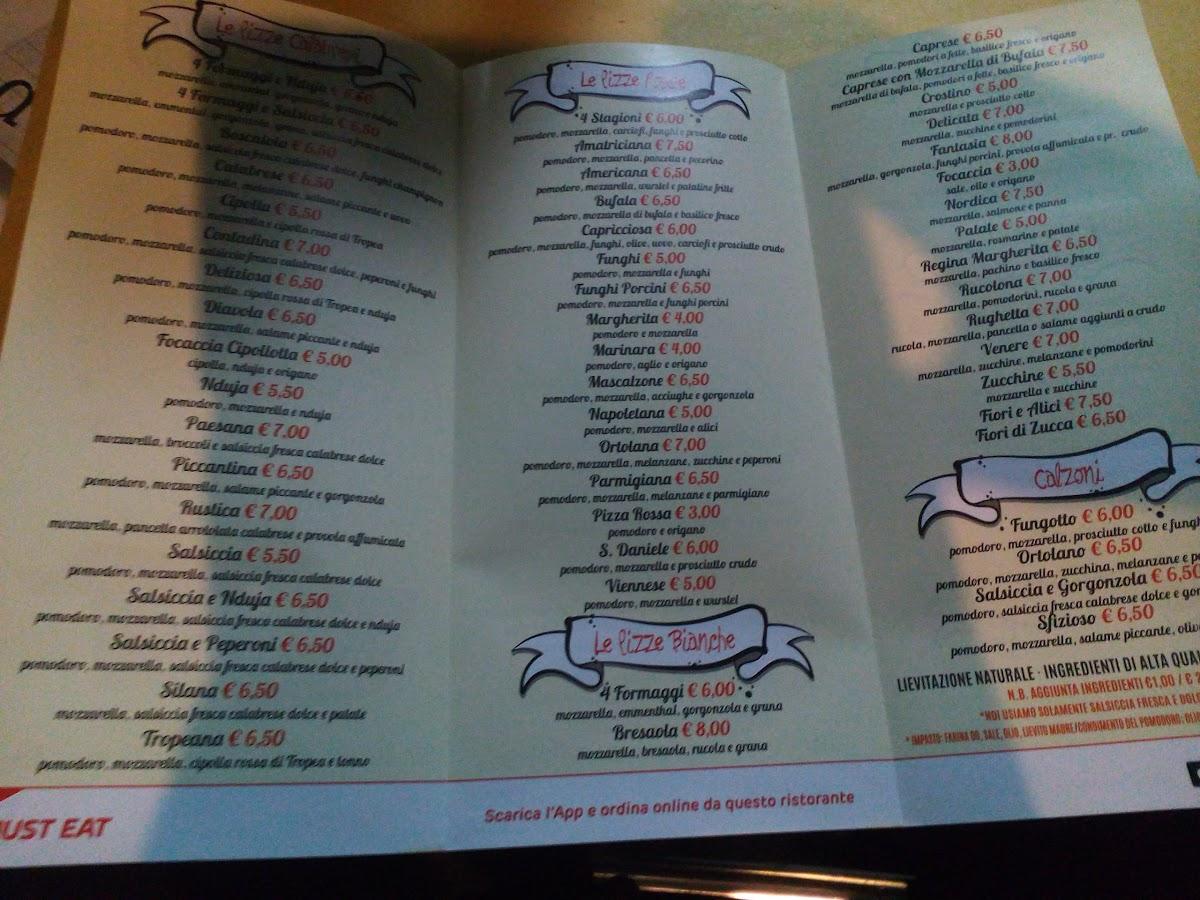 Le Pizze Calabresi
4 Formaggi e Nduja €
mozzarella, emmental, gorgonzola, grana e nduja
4 Formaggi e Salsiccia € 6,50
mozzarella, emmental, gorgonzola, grana, salsiccia fresca calabrese dolce
Boscaiola € 6,50
pomodoro, mozzarella, salsiccia fresca calabrese dolce, funghi champignon
Calabrese € 6,50
pomodoro, mozzarella, melanzane, salame piccante e uovo
Cipolla € 5,50
pomodoro, mozzarella e cipolla rossa di Tropea
Contadina € 7,00
pomodoro, mozzarella, salsiccia fresca calabrese dolce, peperoni e funghi
Deliziosa € 6,50
pomodoro, mozzarella, cipolla rossa di Tropea e nduja
Diavola € 6,50
pomodoro, mozzarella, salame piccante e nduja
Focaccia Cipollotta € 5,00
cipolla, nduja e origano
Nduja € 5,50
pomodoro, mozzarella e nduja
Paesana € 7,00
mozzarella, broccoli e salsiccia fresca calabrese dolce
Piccantina € 6,50
pomodoro, mozzarella, salame piccante e gorgonzola
Rustica € 7,00
mozzarella, pancetta arrotolata calabrese e provola affumicata
Salsiccia € 5,50
pomodoro, mozzarella, salsiccia fresca calabrese dolce
Salsiccia e Nduja € 6,50
pomodoro, mozzarella, salsiccia fresca calabrese dolce e nduja
Salsiccia e Peperoni € 6,50
pomodoro, mozzarella, salsiccia fresca calabrese dolce e peperoni
Silana € 6,50
mozzarella, salsiccia fresca calabrese dolce e patate
Tropeana € 6,50
pomodoro, mozzarella, cipolla rossa di Tropea e tonno
JUST EAT
Le Pizze Rosse
4 Stagioni € 6,00
pomodoro, mozzarella, carciofi, funghi e prosciutto cotto
Amatriciana € 7,50
pomodoro, mozzarella, pancetta e pecorino
Americana € 6,50
pomodoro, mozzarella, wurstel e patatine fritte
Bufala € 6,50
pomodoro, mozzarella di bufala e basilico fresco
Capricciosa € 6,00
pomodoro, mozzarella, funghi, olive, uovo, carciofi e prosciutto crudo
Funghi € 5,00
pomodoro, mozzarella e funghi
Funghi Porcini € 6,50
pomodoro, mozzarella e funghi porcini
Margherita € 4,00
pomodoro e mozzarella
Marinara € 4,00
pomodoro, aglio e origano
Mascalzone € 6,50
pomodoro, mozzarella, acciughe e gorgonzola
Napoletana € 5,00
pomodoro, mozzarella e alici
Ortolana € 7,00
pomodoro, mozzarella, melanzane, zucchine e peperoni
Parmigiana € 6,50
pomodoro, mozzarella, melanzane e parmigiano
Pizza Rossa € 3,00
pomodoro e origano
S. Daniele € 6,00
pomodoro, mozzarella e prosciutto crudo
Viennese € 5,00
pomodoro, mozzarella e wurstel
Le Pizze Bianche
4 Formaggi € 6,00
mozzarella, emmenthal, gorgonzola e grana
Bresaola € 8,00
mozzarella, bresaola, rucola e grana
Scarica l'App e ordina online da questo ristorante
Caprese € 6,50
mozzarella, pomodori a fette, basilico fresco e origano
Caprese con Mozzarella di Bufala € 7,50
mozzarella di bufala, pomodori a fette, basilico fresco e origano
Crostino € 5,00
mozzarella e prosciutto cotto
Delicata € 7,00
mozzarella, zucchine e pomodorini
Fantasia € 8,00
mozzarella, gorgonzola, funghi porcini, provola affumicata e pr. crudo
Focaccia € 3,00
sale, olio e origano
Nordica € 7,50
mozzarella, salmone e panna
Patate € 5,00
mozzarella, rosmarino e patate
Regina Margherita € 6,50
mozzarella, pachino e basilico fresco
Rucolona € 7,00
mozzarella, pomodorini, rucola e grana
Rughetta € 7,00
rucola, mozzarella, pancetta o salame aggiunti a crudo
Venere € 7,00
mozzarella, zucchine, melanzane e pomodorini
Zucchine € 5,50
mozzarella e zucchine
Fiori e Alici € 7,50
Fiori di Zucca € 6,50
Calzoni
Fungotto € 6,00
pomodoro, mozzarella, prosciutto cotto e funghi
Ortolano € 6,50
pomodoro, mozzarella, zucchina, melanzane e
Salsiccia e Gorgonzola € 6,50
pomodoro, salsiccia fresca calabrese dolce e
Sfizioso € 6,50
pomodoro, mozzarella, salame piccante,
LIEVITAZIONE NATURALE · INGREDIENTI DI ALTA
N.B. AGGIUNTA INGREDIENTI €1,00 / €
*NOI USIAMO SOLAMENTE SALSICCIA FRESCA E
* IMPASTO: FARINA 00, SALE, OLIO, LIEVITO MADRE/CONDIMENTO DEL POMODORO: